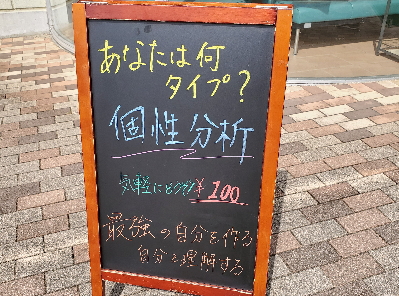 あなたは何
タイプ?
個性分析
気軽にどうぞ ¥100
最強の自分を作る
自分を理解する